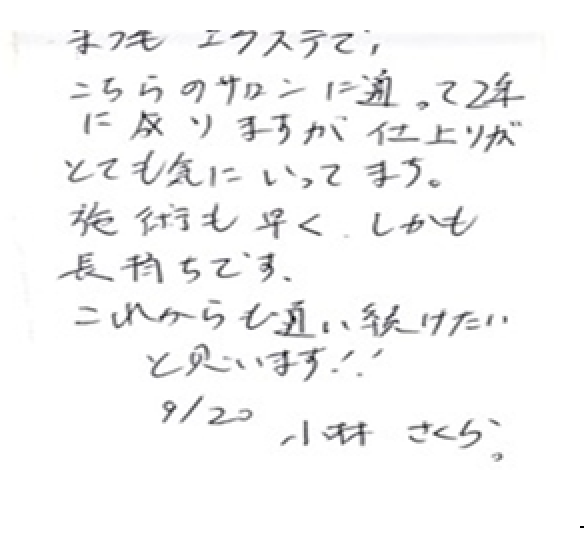 まつも エクステで、
こちらのサロンに通って2年
に成りますが 仕上りが
とても気にいってます。
施術も早く、しかも
長持ちです。
これからも通い続けたい
と思います!!
9/20
小林 さくら。